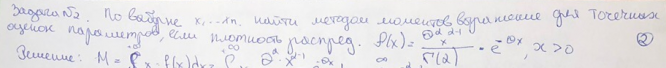 Задача №2. По выборке x₁...xn. найти методом моментов выражение для точечных
оценок параметров, если плотность распред. f(x) = θ^α x^(α-1) / Γ(α) · e^(-θx), x > 0 ②
Решение: M = ∫ x · f(x)dx = ∫ θ^α · x^(α-1)